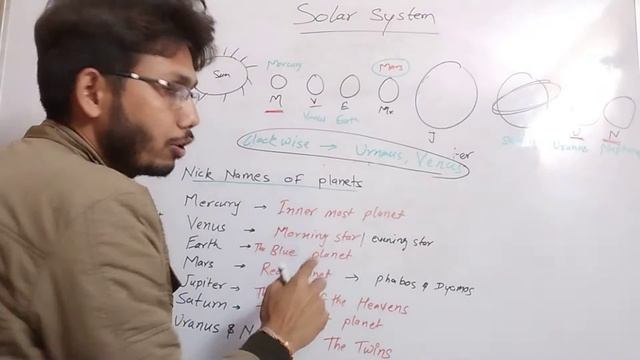 Solar System
Sun
Mercury
Mars
M
V
E
Mr
J
U
N
Venus Earth
Uranus
iter
Clockwise → Urnaus, Venus
Nick Names of planets
Mercury → Inner most planet
Venus → Morning star / evening star
Earth → The Blue planet
Mars → Red → phobos & Dyomos
Jupiter → the Heavens
Saturn → planet
Uranus & N The Twins